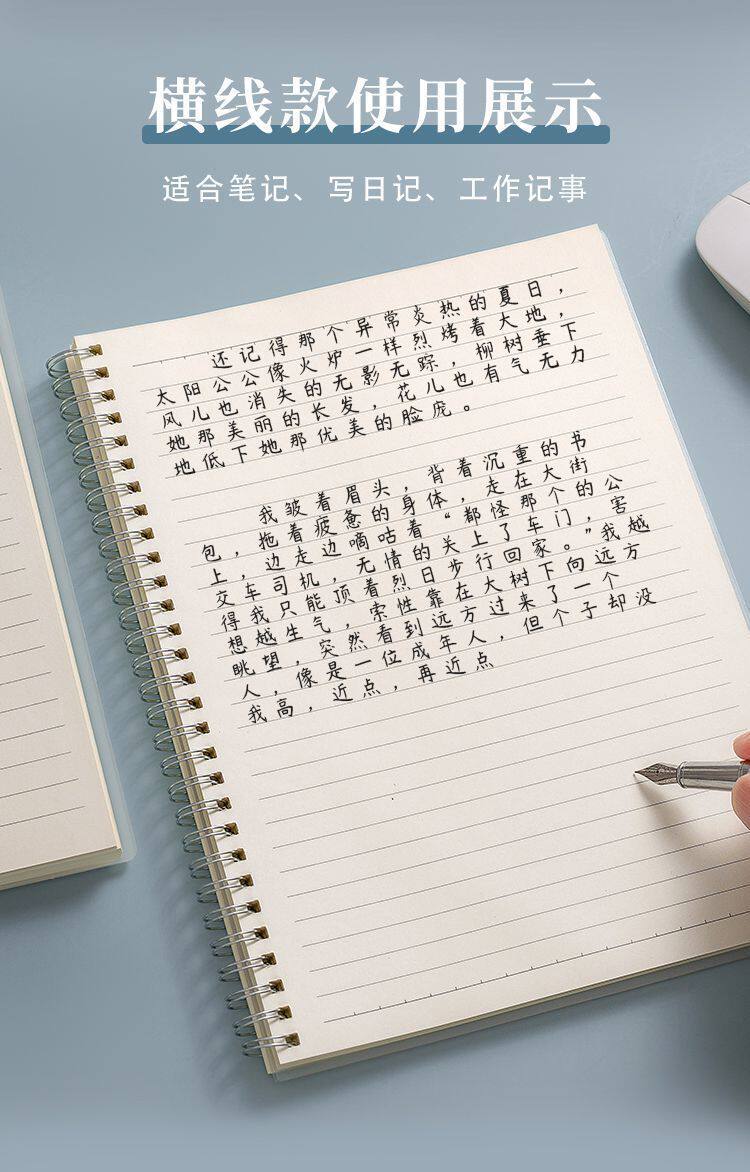 横线款使用展示
适合笔记、写日记、工作记事
还记得那个异常炎热的夏日，
太阳公公像火炉一样烈烤着大地，
风儿也消失的无影无踪，柳树垂下
她那美丽的长发，花儿也有气无力
地低下她那优美的脸庞。
我皱着眉头，背着沉重的书
包，拖着疲惫的身体，走在大街
上，边走边嘀咕着“都怪那个的公
交车司机，无情的关上了车门，害
得我只能顶着烈日步行回家。”我越
想越生气，索性靠在大树下向远方
眺望，突然看到远方过来了一个
人，像是一位成年人，但个子却没
我高，近点，再近点